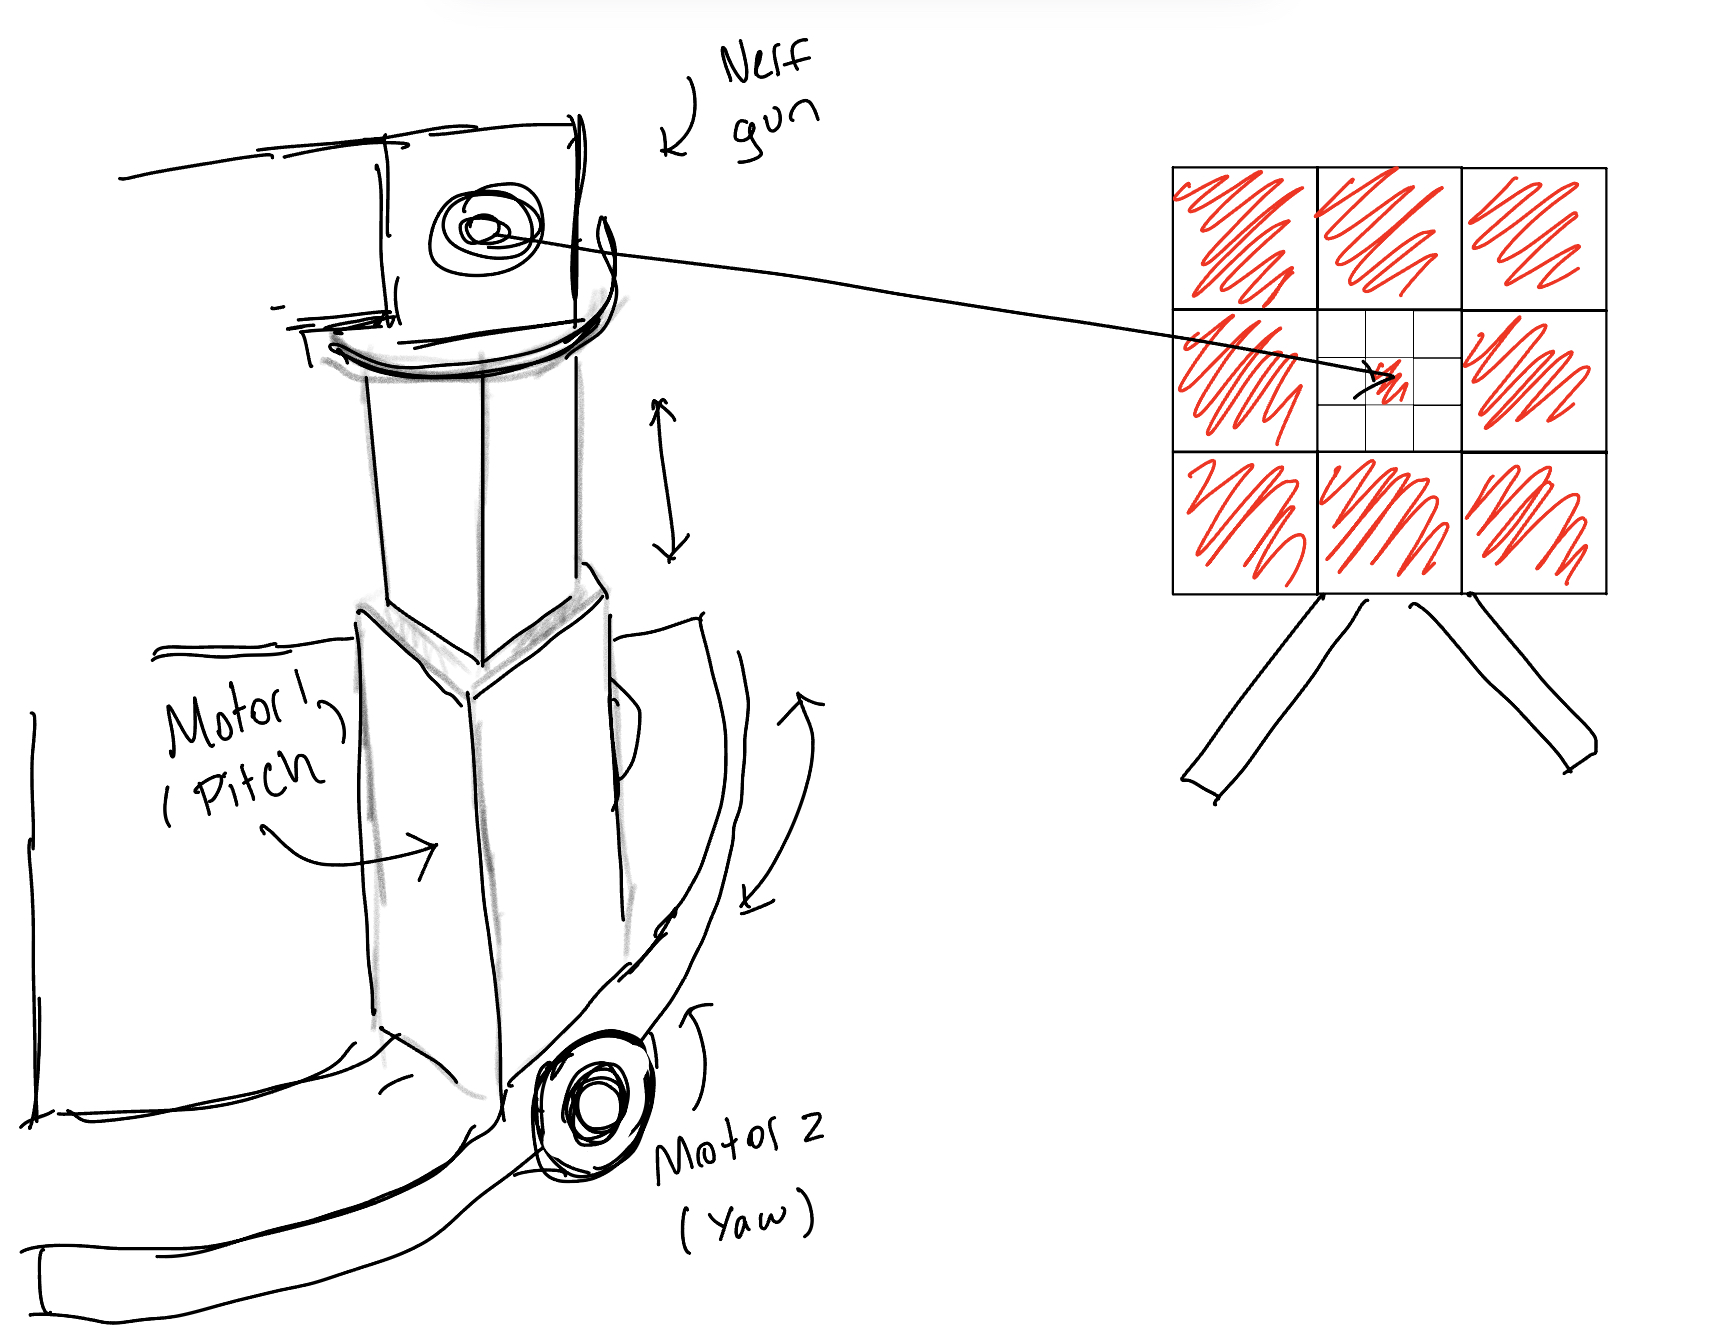 Nerf
gun
Motor 1
(Pitch)
Motor 2
(Yaw)